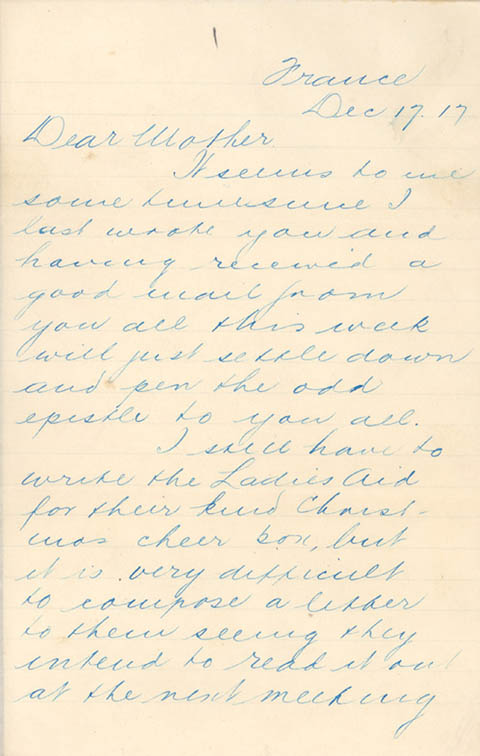 France
Dec 17. 17
Dear Mother
It seems to me
some time since I
last wrote you and
having received a
good mail from
you all this week
will just settle down
and pen the odd
epistle to you all.
I still have to
write the Ladies Aid
for their kind Christ-
mas cheer box, but
it is very difficult
to compose a letter
to them seeing they
intend to read it out
at the next meeting